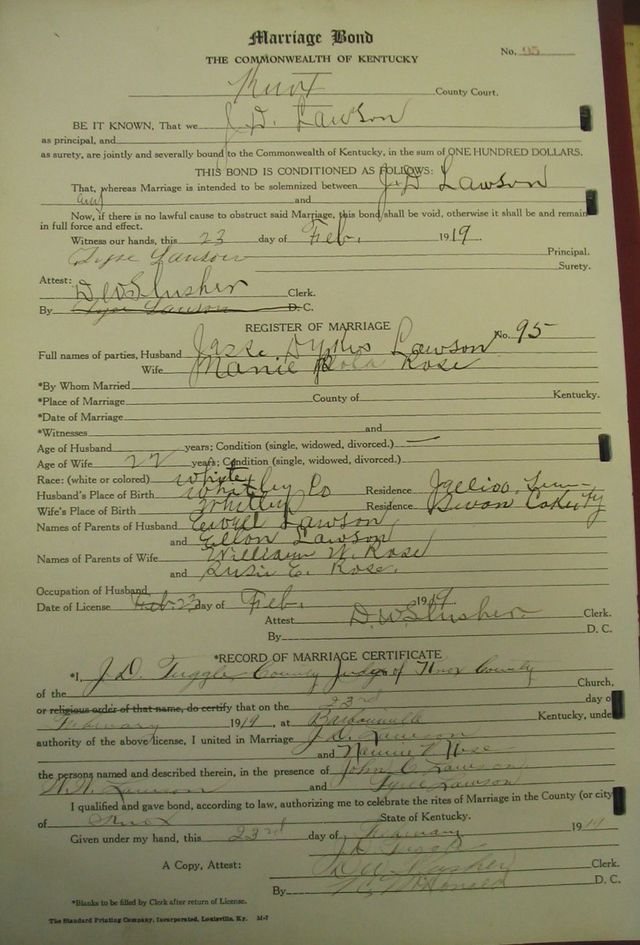 Marriage Bond
THE COMMONWEALTH OF KENTUCKY
No. 95
Knox County Court.
BE IT KNOWN, That we J. D. Lawson
as principal, and
as surety, are jointly and severally bound to the Commonwealth of Kentucky, in the sum of ONE HUNDRED DOLLARS.
THIS BOND IS CONDITIONED AS FOLLOWS:
That, whereas Marriage is intended to be solemnized between J. D Lawson
and
Now, if there is no lawful cause to obstruct said Marriage, this bond shall be void, otherwise it shall be and remain
in full force and effect.
Witness our hands, this 23 day of Feb. 1919.
Lawson Principal.
Surety.
Attest: D. W. Slusher Clerk.
By Lawson D. C.
REGISTER OF MARRIAGE
No. 95
Full names of parties, Husband Dykes Lawson
Wife Rose
*By Whom Married
*Place of Marriage County of Kentucky.
*Date of Marriage
*Witnesses and
Age of Husband years; Condition (single, widowed, divorced.)
Age of Wife 22 years; Condition (single, widowed, divorced.)
Race: (white or colored) White
Husband's Place of Birth Whitley Co Residence Jellico, Tenn
Wife's Place of Birth Whitley Residence Ky
Names of Parents of Husband Lawson
and Ellon Lawson
Names of Parents of Wife William W. Rose
and Susie E. Rose.
Occupation of Husband
Date of License Feb. 23 day of Feb. 1919
Attest D. W. Slusher. Clerk.
By D. C.
*RECORD OF MARRIAGE CERTIFICATE
*I, J. D. Tuggle County Judge of Knox County
of the Church,
or religious order of that name, do certify that on the 23rd day of
February 1919, at Barbourville Kentucky, under
authority of the above license, I united in Marriage J. D. Lawson
and Rose
the persons named and described therein, in the presence of John C. Lawson
Lawson and Lawson
I qualified and gave bond, according to law, authorizing me to celebrate the rites of Marriage in the County (or city)
of Knox State of Kentucky.
Given under my hand, this 23rd day of February 1919
J. D. Tuggle
A Copy, Attest: D. W. Slusher Clerk.
By McDonald D. C.
*Blanks to be filled by Clerk after return of License.
The Standard Printing Company, Incorporated, Louisville, Ky. M-7